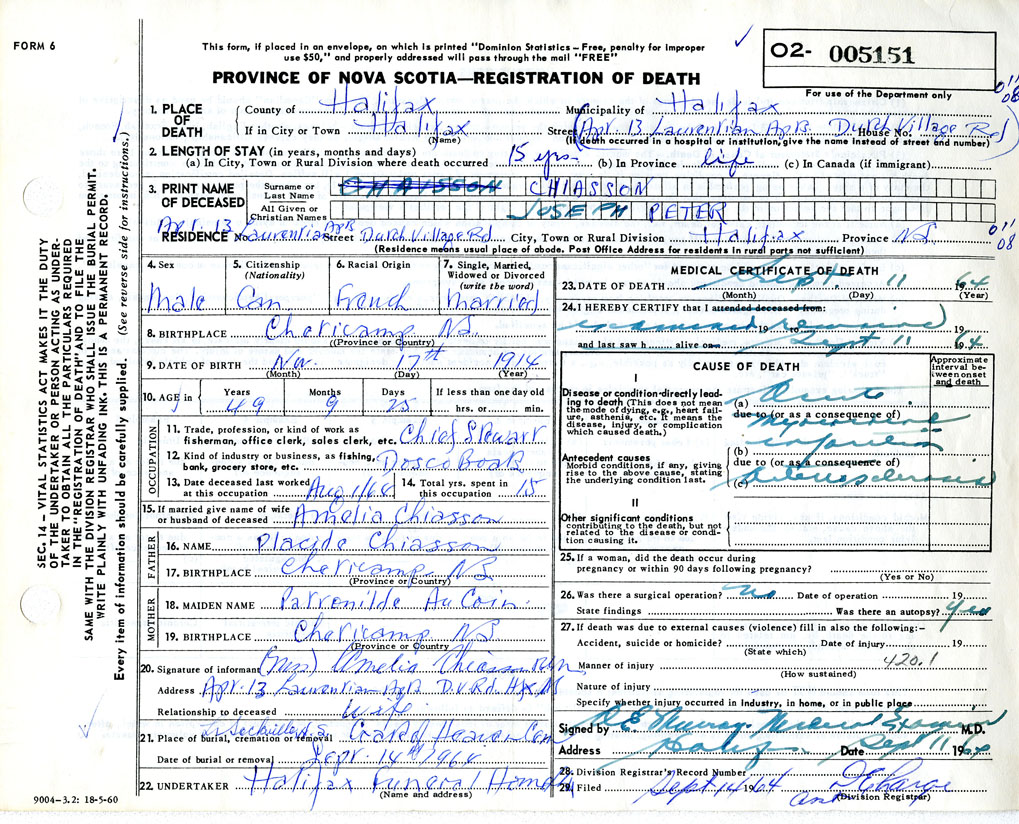 FORM 6
This form, if placed in an envelope, on which is printed "Dominion Statistics – Free, penalty for improper
use $50," and properly addressed will pass through the mail "FREE"
PROVINCE OF NOVA SCOTIA—REGISTRATION OF DEATH
02- 005151
For use of the Department only
011
08
1. PLACE OF DEATH
County of Halifax Municipality of Halifax
If in City or Town Halifax Street (Apt 13 Laurentian Apts. Dutch Village Rd) House No.
(Name) (If death occurred in a hospital or institution, give the name instead of street and number)
2. LENGTH OF STAY (in years, months and days)
(a) In City, Town or Rural Division where death occurred 15 yrs. (b) In Province life (c) In Canada (if immigrant)
3. PRINT NAME OF DECEASED
Surname or Last Name CHAISSON CHIASSON
All Given or Christian Names JOSEPH PETER
Apt. 13 Apts
RESIDENCE No. Laurentian Street Dutch Village Rd City, Town or Rural Division Halifax Province NS
011
08
(Residence means usual place of abode. Post Office Address for residents in rural parts not sufficient)
4. Sex Male
5. Citizenship (Nationality) Can
6. Racial Origin French
7. Single, Married, Widowed or Divorced (write the word) Married
8. BIRTHPLACE Cheticamp NS.
(Province or Country)
9. DATE OF BIRTH Nov. 17th 1914
(Month) (Day) (Year)
10. AGE in Years 49 Months 9 Days 25 If less than one day old hrs. or min.
OCCUPATION
11. Trade, profession, or kind of work as fisherman, office clerk, sales clerk, etc. Chief Stewart
12. Kind of industry or business, as fishing, bank, grocery store, etc. Dosco Boats
13. Date deceased last worked at this occupation Aug 1/64
14. Total yrs. spent in this occupation 15
15. If married give name of wife or husband of deceased Amelia Chiasson
FATHER
16. NAME Placide Chiasson
17. BIRTHPLACE Cheticamp NS
(Province or Country)
MOTHER
18. MAIDEN NAME Patronilde AuCoin
19. BIRTHPLACE Cheticamp NS
(Province or Country)
20. Signature of informant (Mrs) Amelia Chiasson
Address Apt. 13 Laurentian Apts D.V.Rd. Hfx NS
Relationship to deceased wife
21. Place of burial, cremation or removal L. Sackville N.S. Gate of Heaven Cem
Date of burial or removal Sept. 14th 1964
22. UNDERTAKER Halifax Funeral Home
(Name and address)
9004–3.2: 18-5-60
MEDICAL CERTIFICATE OF DEATH
23. DATE OF DEATH Sept. 11 1964
(Month) (Day) (Year)
24. I HEREBY CERTIFY that I attended deceased from:
examined 19 to remains 19
and last saw h alive on Sept 11 1964
CAUSE OF DEATH
Approximate interval between onset and death
I
Disease or condition directly leading to death (This does not mean the mode of dying, e.g., heart failure, asthenia, etc. It means the disease, injury, or complication which caused death.)
(a) Acute
due to (or as a consequence of)
myocardial
infarction
Antecedent causes
Morbid conditions, if any, giving rise to the above cause, stating the underlying condition last.
(b)
due to (or as a consequence of)
(c) arteriosclerosis
II
Other significant conditions
contributing to the death, but not related to the disease or condition causing it.
25. If a woman, did the death occur during pregnancy or within 90 days following pregnancy?
(Yes or No)
26. Was there a surgical operation? no Date of operation 19
State findings Was there an autopsy? yes
27. If death was due to external causes (violence) fill in also the following:–
Accident, suicide or homicide? Date of injury 19
(State which)
Manner of injury 420.1
(How sustained)
Nature of injury
Specify whether injury occurred in industry, in home, or in public place
Signed by R E Murray. Medical Examiner M.D.
Address Halifax Date Sept 11 1964
28. Division Registrar's Record Number
29. Filed Sept 14 1964
(Division Registrar)
SEC. 14 – VITAL STATISTICS ACT MAKES IT THE DUTY
OF THE UNDERTAKER OR PERSON ACTING AS UNDER-
TAKER TO OBTAIN ALL THE PARTICULARS REQUIRED
IN THE "REGISTRATION OF DEATH" AND TO FILE THE
SAME WITH THE DIVISION REGISTRAR WHO SHALL ISSUE THE BURIAL PERMIT.
WRITE PLAINLY WITH UNFADING INK. THIS IS A PERMANENT RECORD.
Every item of information should be carefully supplied. (See reverse side for instructions.)